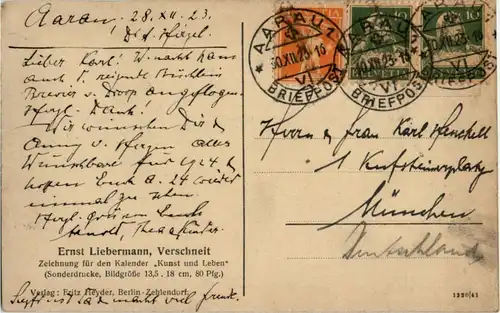 Aarau, 28.XII.23.
Lieber Karl! Weihnacht kam
auch d. reizende Büchlein
Brevier v. Dorp angeflogen.
Herzl. Dank!
Wir wünschen Dir &
Anny v. Herzen alles
Wünschbare für 1924 &
hoffen Euch a. 24 wieder
einmal zu sehen.
Herzl. grüssen Euch
Ernst Liebermann, Verschneit
Zeichnung für den Kalender „Kunst und Leben"
(Sonderdrucke, Bildgröße 13,5 . 18 cm, 80 Pfg.)
Verlag: Fritz Heyder, Berlin-Zehlendorf
macht viel Freude.
AARAU 1
30.XII.23-16
VI
BRIEFPOST
AARAU 1
30.XII.23-16
VI
BRIEFPOST
10
10
Herrn & Frau Karl Henckell
1 Kufsteinerplatz
München
Deutschland
1220/41